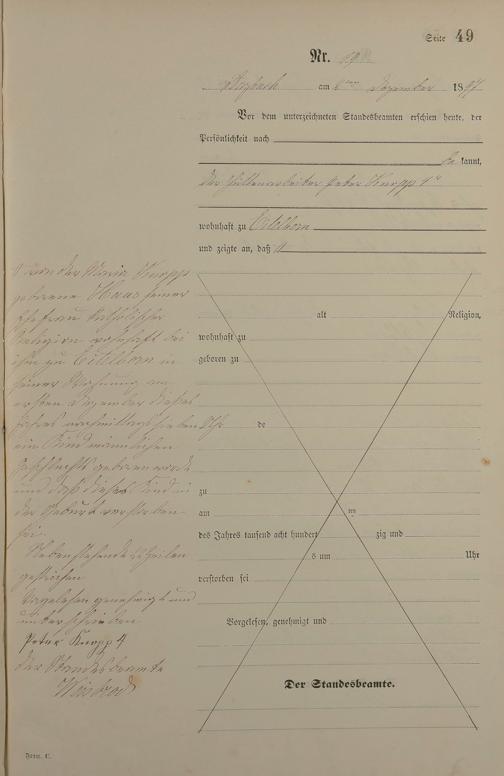 Seite 49
Nr.
am Dezember 1897
Vor dem unterzeichneten Standesbeamten erschien heute, der
Persönlichkeit nach
be kannt,
der Hüttenarbeiter Peter Knopp
wohnhaft zu Eitelborn
und zeigte an, daß
von der Maria Knopp
geborene Haas seiner
Ehefrau katholischer
Religion wohnhaft bei
ihm zu Eitelborn in
seiner Wohnung am
ersten Dezember dieses
Jahres nachmittags sieben Uhr
ein Kind männlichen
Geschlechts geboren worde
und daß dieses Kind in
der Geburt verstorben
sei.
Nebenstehende Zeilen
gestrichen
Vorgelesen genehmigt und
unterschrieben
Peter Knopp 4
Der Standesbeamte
alt Religion,
wohnhaft zu
geboren zu
de
zu
am
des Jahres tausend acht hundert zig und
s um Uhr
verstorben sei
Vorgelesen, genehmigt und
Der Standesbeamte.
Form. C.